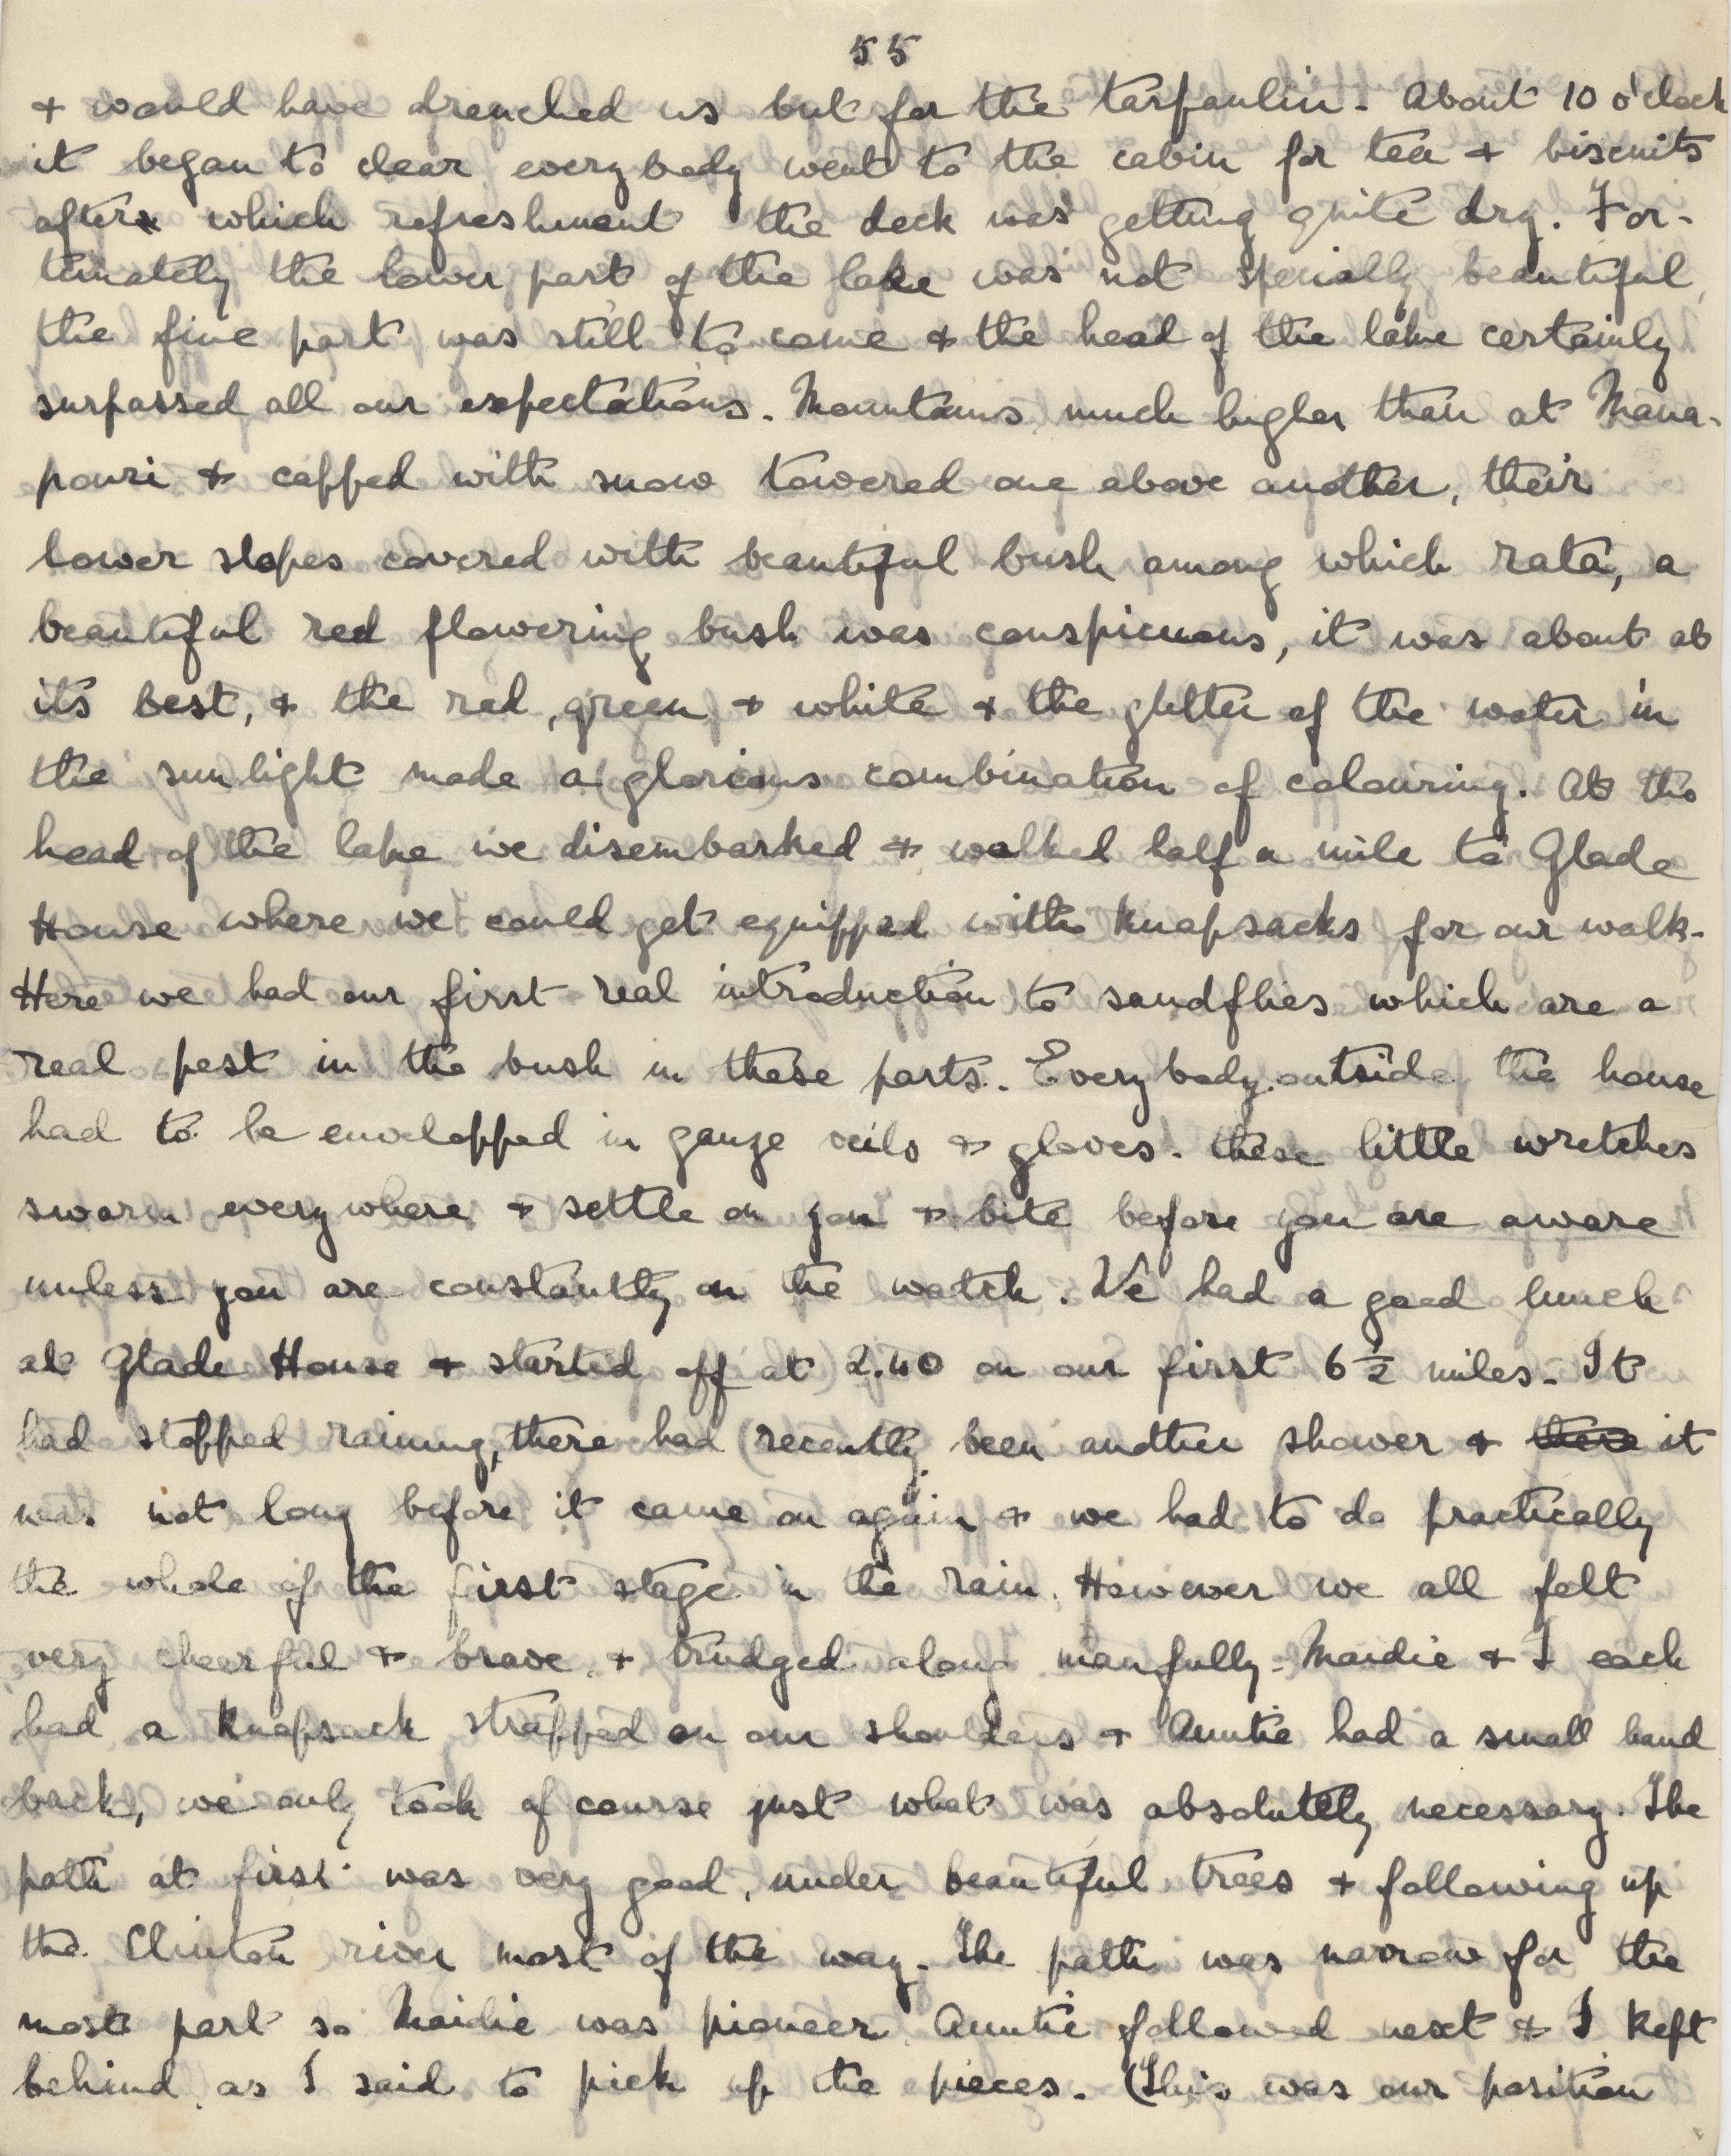 55
& would have drenched us but for the tarpaulin. About 10 o'clock
it began to clear everybody went to the cabin for tea & biscuits
after which refreshment the deck was getting quite dry. For-
tunately the lower part of the lake was not specially beautiful,
the fine part was still to come & the head of the lake certainly
surpassed all our expectations. Mountains much higher than at Mana-
pouri & capped with snow towered one above another, their
lower slopes covered with beautiful bush among which rata, a
beautiful red flowering bush was conspicuous, it was about at
its best, & the red, green & white & the glitter of the water in
the sunlight made a glorious combination of colouring. At the
head of the lake we disembarked & walked half a mile to Glade
House where we could get equipped with knapsacks for our walk.
Here we had our first real introduction to sandflies which are a
real pest in the bush in these parts. Everybody outside the house
had to be envelopped in gauze veils & gloves. these little wretches
swarm everywhere & settle on you & bite before you are aware
unless you are constantly on the watch. We had a good lunch
at Glade House & started off at 2.40 on our first 6½ miles. It
had stopped raining, there had recently been another shower & there it
was not long before it came on again & we had to do practically
the whole of the first stage in the rain. However we all felt
very cheerful & brave & trudged along manfully. Maidie & I each
had a knapsack strapped on our shoulders & Auntie had a small hand
back, we only took of course just what was absolutely necessary. The
path at first was very good, under beautiful trees & following up
the Clinton river most of the way. The path was narrow for the
most part so Maidie was pioneer Auntie followed next & I kept
behind as I said to pick up the pieces. (This was our position